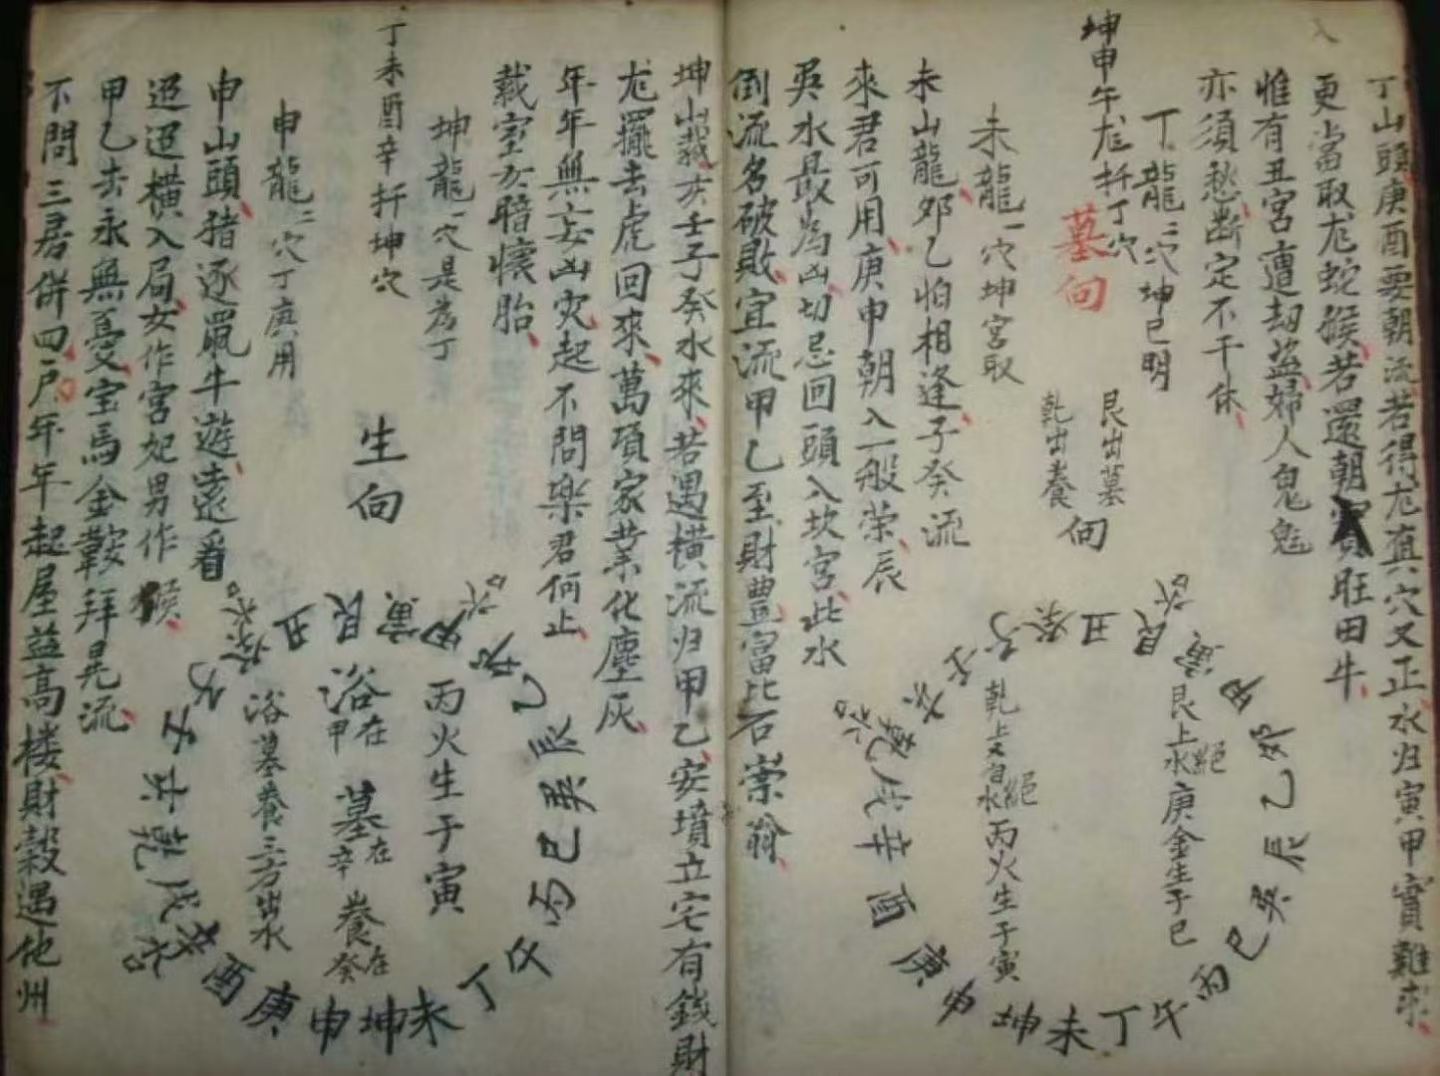 丁山頭庚酉要朝流若得尨真穴又正水归寅甲實難求
更當取尨蛇猴若還朝寅旺田牛
惟有丑宮遭劫盗婦人鬼魅
亦須愁断定不干休
丁龍二穴坤已明
坤申午尨扦丁穴
墓向
艮出墓向
乾出養
未龍一穴坤宮取
未山龍卯乙怕相逢子癸流
來君可用庚申朝入一般荣辰
巽水最為凶切忌回頭入坎宮此水
倒流名破敗宜流甲乙至財豊富比石崇翁
艮上絕水庚金生于巳
乾上絕水丙火生于寅
壬子癸丑艮浴寅甲卯乙辰巽巳丙午丁未坤申庚酉辛戌乾浴亥
坤山裁亥壬子癸水來若遇横流归甲乙安墳立宅有錢財
尨擺去虎回來萬項家業化塵灰
年年無妄凶灾起不問樂君何止
裁室女暗懷胎
坤龍一穴是為丁
丁未酉辛扦坤穴
生向
申龍二穴丁庚用
申山頭猪逐鼠牛遊遠看
迢迢横入局女作宮妃男作
甲乙去永無憂宝馬金鞍拜晃流
不問三房併四户年年起屋益高楼財穀遇他州
丙火生于寅
浴在甲 墓在辛 養在癸
浴墓養三方出水
子癸浴丑艮寅甲浴卯乙辰巽巳丙午丁未坤申庚酉辛浴戌乾亥壬